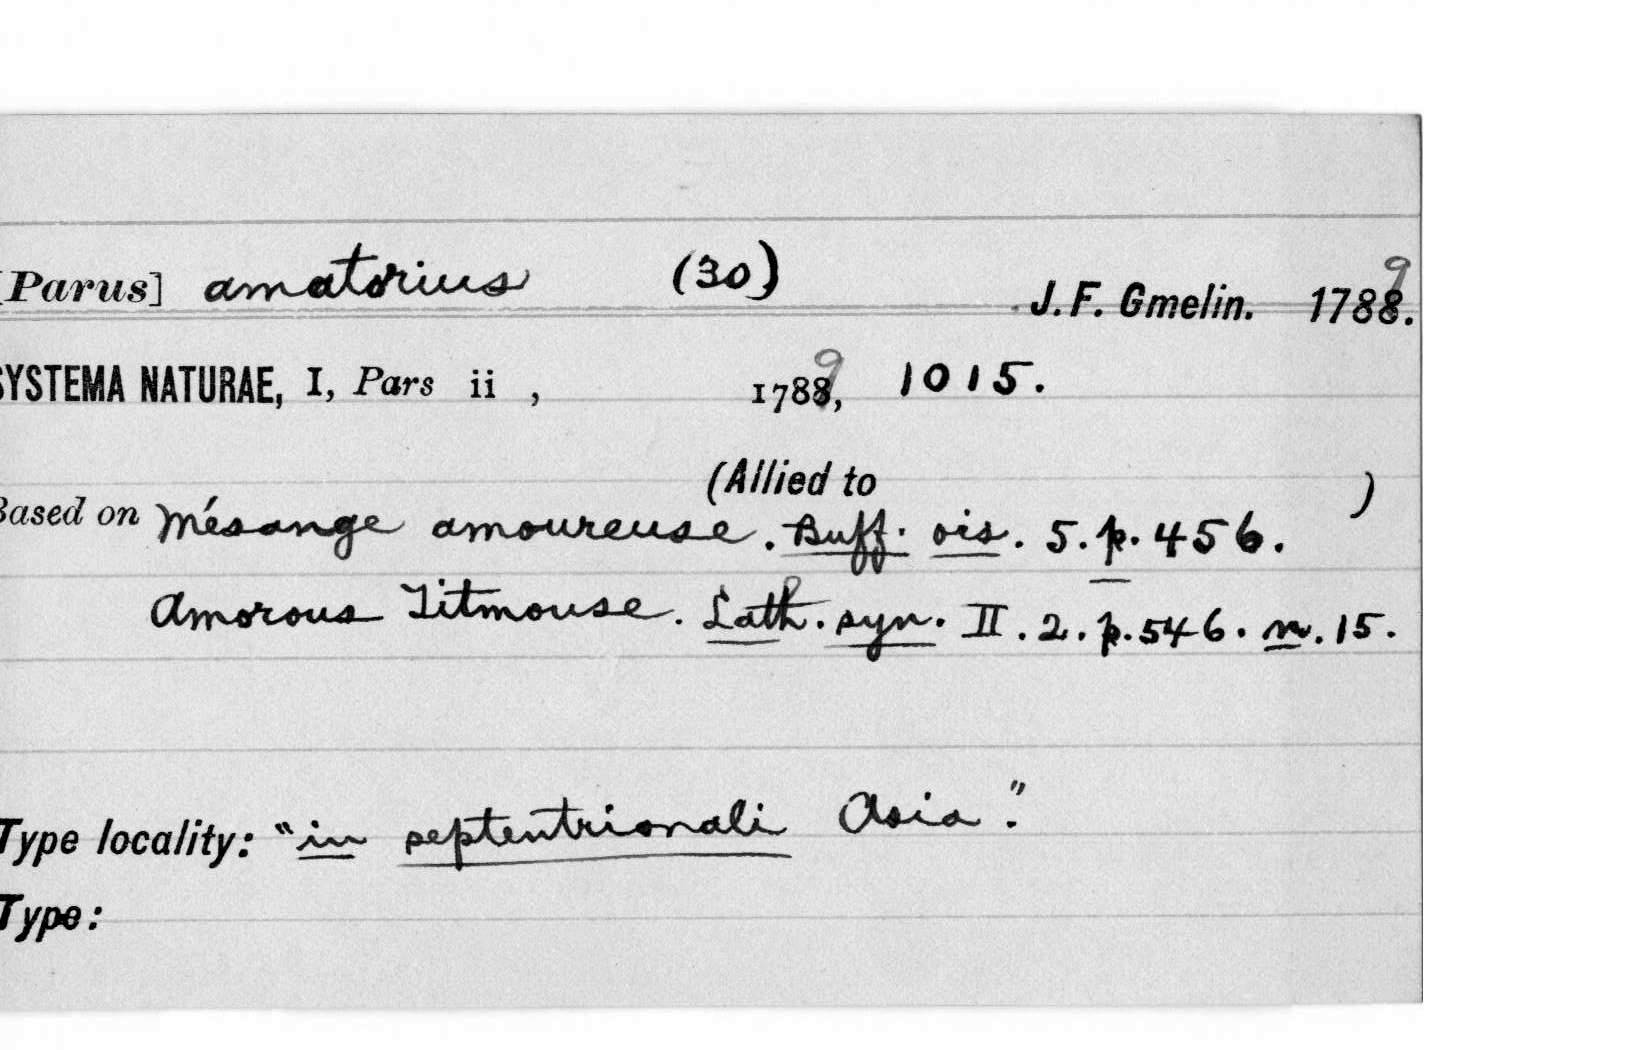 [Parus] amatorius (30) J. F. Gmelin. 1789.
SYSTEMA NATURAE, I, Pars ii , 1789, 1015.
(Allied to )
Based on Mésange amoureuse. Buff. ois. 5. p. 456.
Amorous Titmouse. Lath. syn. II. 2. p. 546. n. 15.
Type locality: "in septentrionali Asia."
Type: